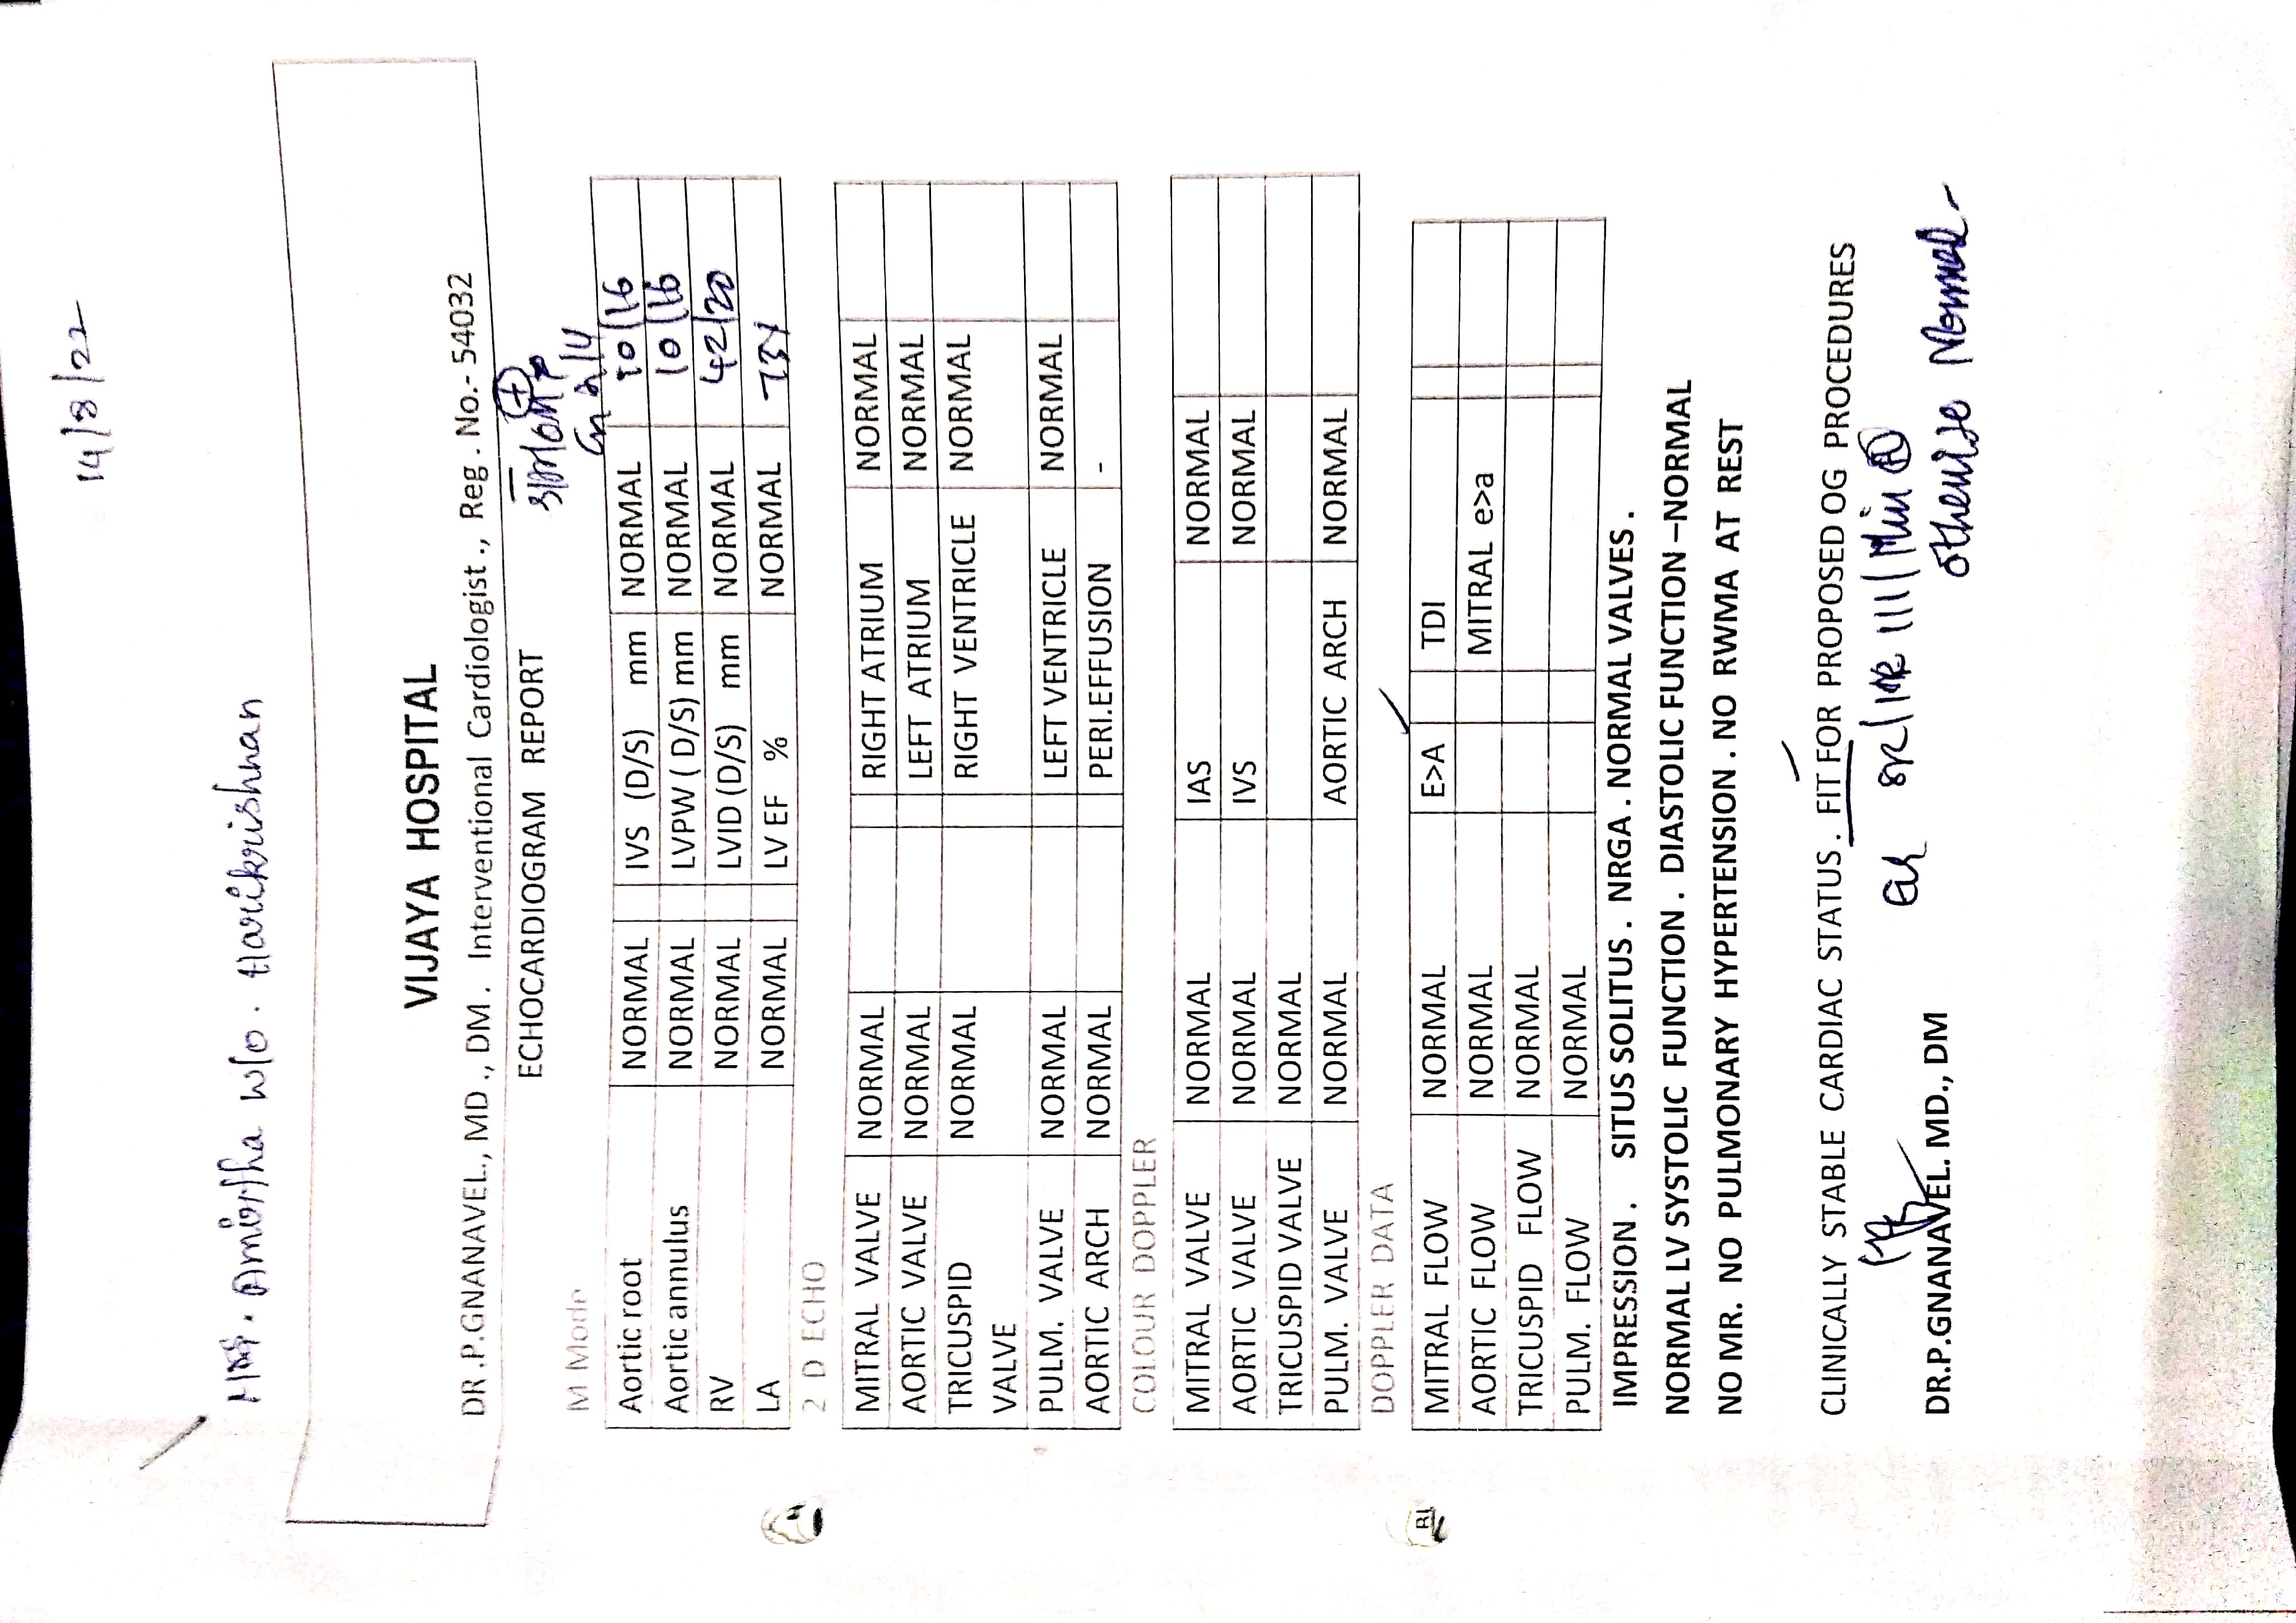 14/8/22
Mrs. Amirtha W/o. Harikrishnan
VIJAYA HOSPITAL
DR.P.GNANAVEL., MD., DM. Interventional Cardiologist., Reg. No.- 54032
ECHOCARDIOGRAM REPORT
M Mode
Aortic root NORMAL IVS (D/S) mm NORMAL 10/16
Aortic annulus NORMAL LVPW (D/S) mm NORMAL 10/16
RV NORMAL LVID (D/S) mm NORMAL 42/20
LA NORMAL LV EF % NORMAL
2 D ECHO
MITRAL VALVE NORMAL RIGHT ATRIUM NORMAL
AORTIC VALVE NORMAL LEFT ATRIUM NORMAL
TRICUSPID NORMAL RIGHT VENTRICLE NORMAL
VALVE
PULM. VALVE NORMAL LEFT VENTRICLE NORMAL
AORTIC ARCH NORMAL PERI.EFFUSION -
COLOUR DOPPLER
MITRAL VALVE NORMAL IAS NORMAL
AORTIC VALVE NORMAL IVS NORMAL
TRICUSPID VALVE NORMAL
PULM. VALVE NORMAL AORTIC ARCH NORMAL
DOPPLER DATA
MITRAL FLOW NORMAL E>A TDI
AORTIC FLOW NORMAL MITRAL e>a
TRICUSPID FLOW NORMAL
PULM. FLOW NORMAL
IMPRESSION. SITUS SOLITUS. NRGA. NORMAL VALVES.
NORMAL LV SYSTOLIC FUNCTION. DIASTOLIC FUNCTION –NORMAL
NO MR. NO PULMONARY HYPERTENSION. NO RWMA AT REST
CLINICALLY STABLE CARDIAC STATUS. FIT FOR PROPOSED OG PROCEDURES
111/Min
otherwise Normal
DR.P.GNANAVEL. MD., DM